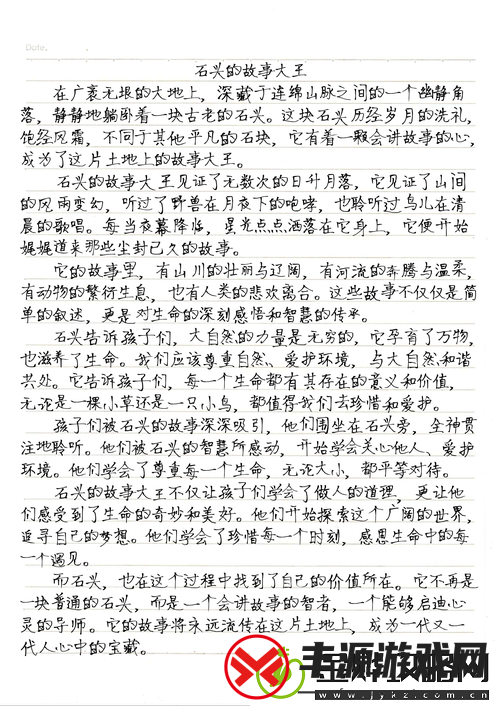 Date.
石兴的故事大王
在广袤无垠的大地上，深藏于连绵山脉之间的一个幽静角
落，静静地躺卧着一块古老的石兴。这块石头历经岁月的洗礼，
饱经风霜，不同于其他平凡的石块，它有着一颗会讲故事的心，
成为了这片土地上的故事大王。
石兴的故事大王见证了无数次的日升月落，它见证了山间
的风雨变幻，听过了野兽在月夜下的咆哮，也聆听过鸟儿在清
晨的歌唱。每当夜幕降临，星光点点洒落在它身上，它便开始
娓娓道来那些尘封已久的故事。
它的故事里，有山川的壮丽与辽阔，有河流的奔腾与温柔，
有动物的繁衍生息，也有人类的悲欢离合。这些故事不仅仅是简
单的叙述，更是对生命的深刻感悟和智慧的传承。
石兴告诉孩子们，大自然的力量是无穷的，它孕育了万物，
也滋养了生命。我们应该尊重自然、爱护环境，与大自然和谐
共处。它告诉孩子们，每一个生命都有其存在的意义和价值，
无论是一棵小草还是一只小鸟，都值得我们去珍惜和爱护。
孩子们被石兴的故事深深吸引，他们围坐在石兴旁，全神贯
注地聆听。他们被石兴的智慧所感动，开始学会关心他人、爱护
环境。他们学会了尊重每一个生命，无论大小，都平等对待。
石兴的故事大王不仅让孩子们学会了做人的道理，更让他
们感受到了生命的奇妙和美好。他们开始探索这个广阔的世界，
追寻自己的梦想。他们学会了珍惜每一个时刻，感恩生命中的每
一个遇见。
而石兴，也在这个过程中找到了自己的价值所在。它不再是
一块普通的石头，而是一个会讲故事的智者，一个能够启迪心
灵的导师。它的故事将永远流传在这片土地上，成为一代又一
代人心中的宝藏。
丰源游戏网
www.jykz.com.cn